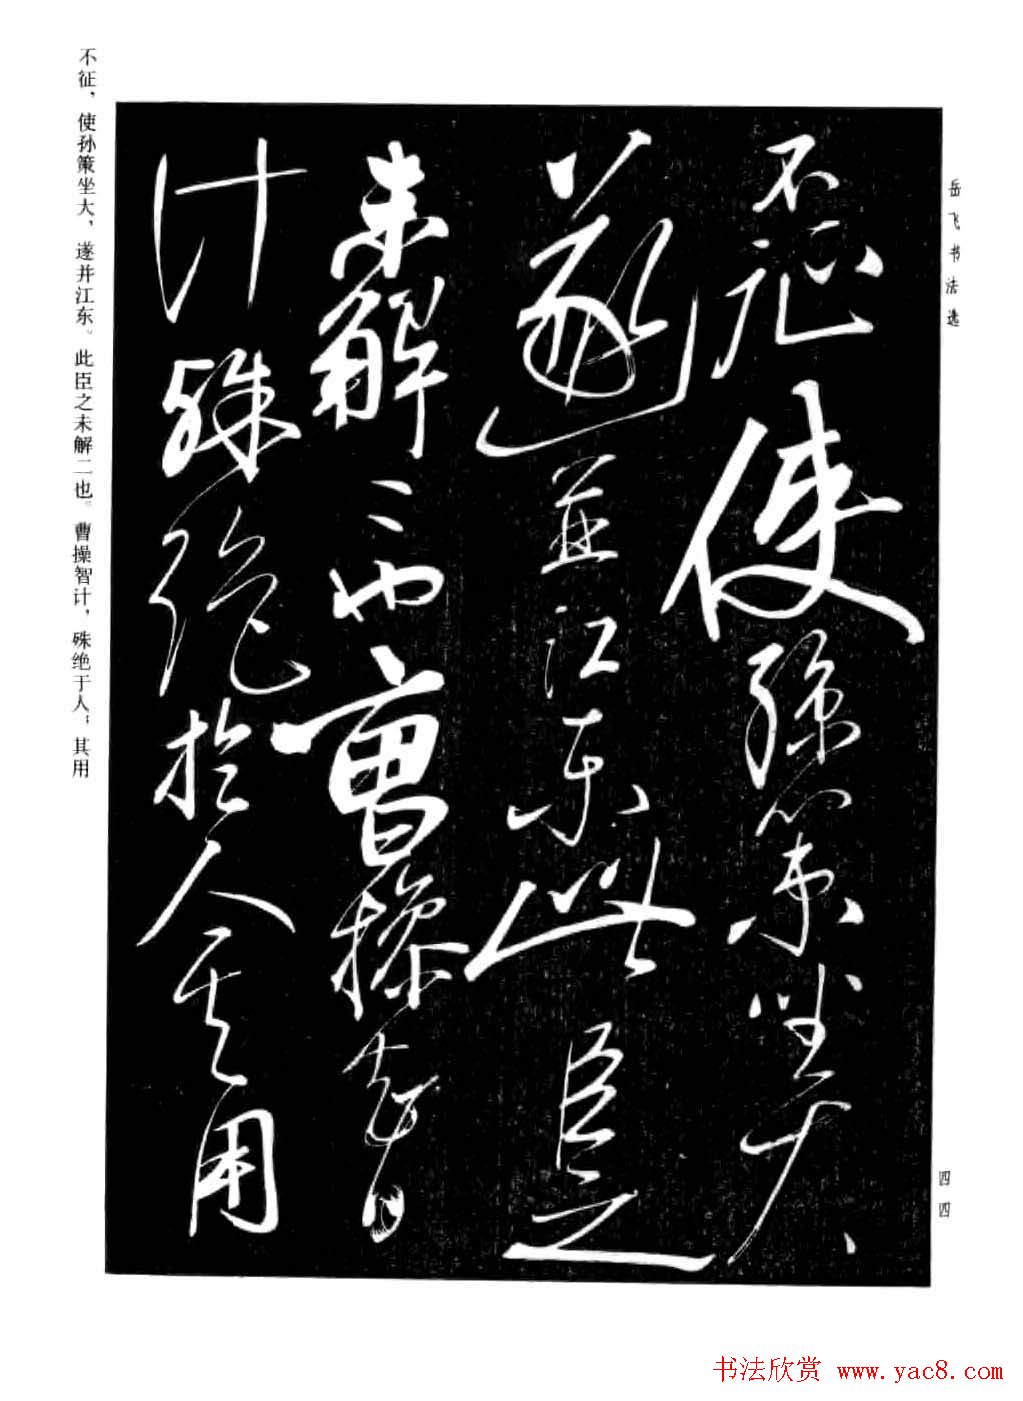 岳飞书法选
不征使孫策坐大
遂並江东此臣之
未解二也曹操智
计殊绝於人其用
不征，使孙策坐大，遂并江东。此臣之未解二也。曹操智计，殊绝于人；其用
四四
书法欣赏 www.yac8.com